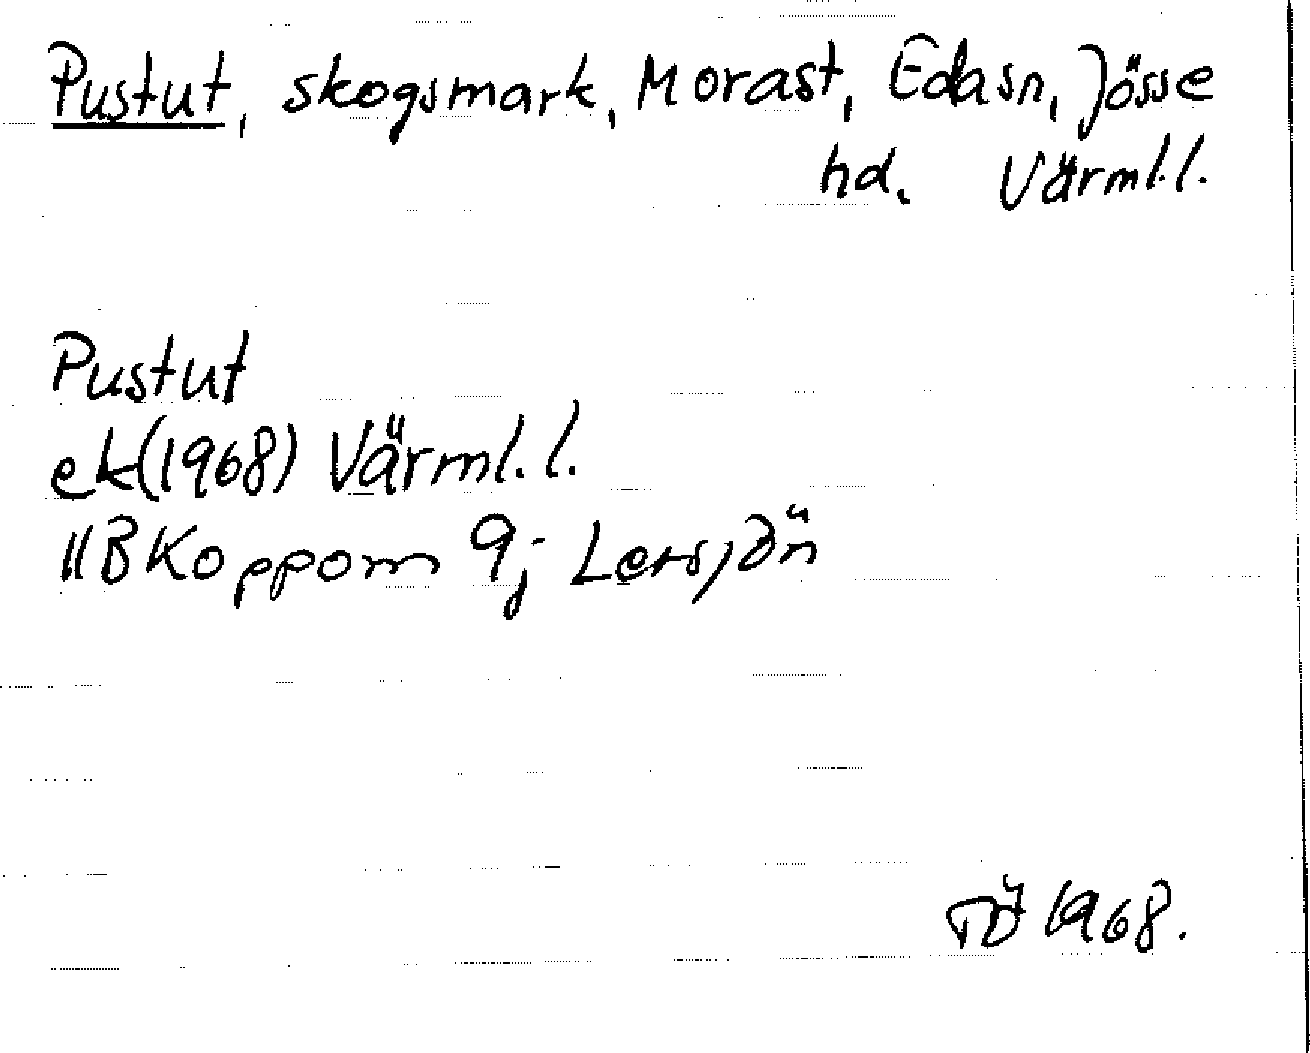 Pustut, skogsmark, Morast, Eda sn, Jösse
hd. Värml.l.
Pustut
ek (1968) Värml.l.
11B Koppom 9j Lersjön
TÖ 1968.